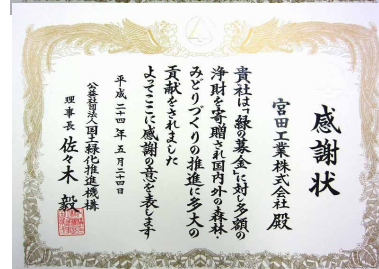 感謝状
宮田工業株式会社 殿
貴社は「緑の募金」に対し多額の
浄財を寄贈され国内外の森林・
みどりづくりの推進に多大の
貢献をされました
よってここに感謝の意を表します
平成二十四年五月二十四日
公益社団法人国土緑化推進機構
理事長 佐々木 毅